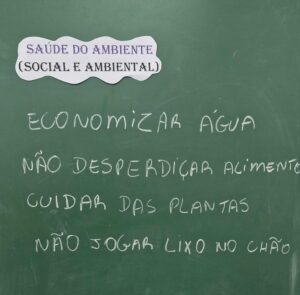 SAÚDE DO AMBIENTE
(SOCIAL E AMBIENTAL)
ECONOMIZAR ÁGUA
NÃO DESPERDIÇAR ALIMENTO
CUIDAR DAS PLANTAS
NÃO JOGAR LIXO NO CHÃO